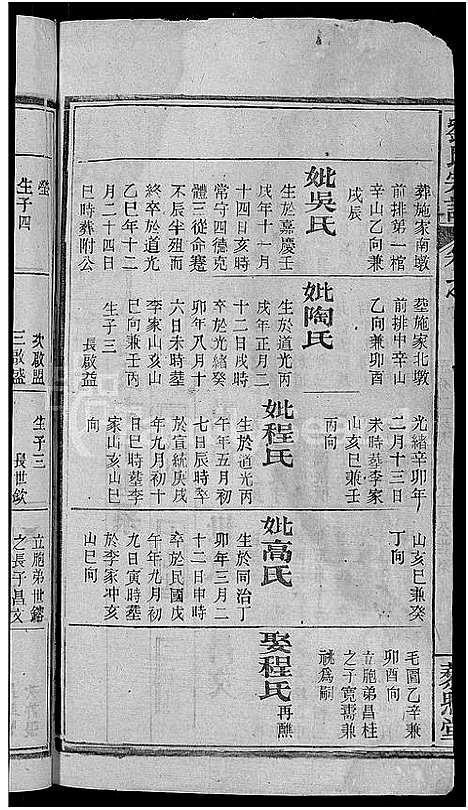 葬施家南墩
前排第一棺
辛山乙向兼
戌辰
妣吳氏
生於嘉慶壬
戌年十一月
十四日亥時
常守四德克
體三從命蹇
不辰半殂而
終卒於道光
乙巳年十二
月二十四日
巳時葬附公
塋
生子四
塟施家北墩
前排中辛山
乙向兼卯酉
妣陶氏
生於道光丙
戌年正月二
十二日戌時
卒於光緒癸
卯年八月十
六日未時塟
李家山亥山
巳向兼壬丙
生子三
長啟益
次啟盟
三啟盛
光緒辛卯年
二月十三日
未時塟李家
山亥巳兼壬
丙向
妣程氏
生於道光丙
午年五月初
七日辰時卒
於宣統庚戌
年九月初十
日巳時塟李
家山亥山巳
向
生子三
長世欽
山亥巳兼癸
丁向
妣高氏
生於同治丁
卯年三月二
十二日申時
卒於民國戊
午年九月初
九日寅時塟
於李家冲亥
山巳向
立胞弟世鎔
之長子昌炆
毛園乙辛兼
卯酉向
立胞弟昌桂
之子寬壽兼
祧為嗣
娶程氏
再醮